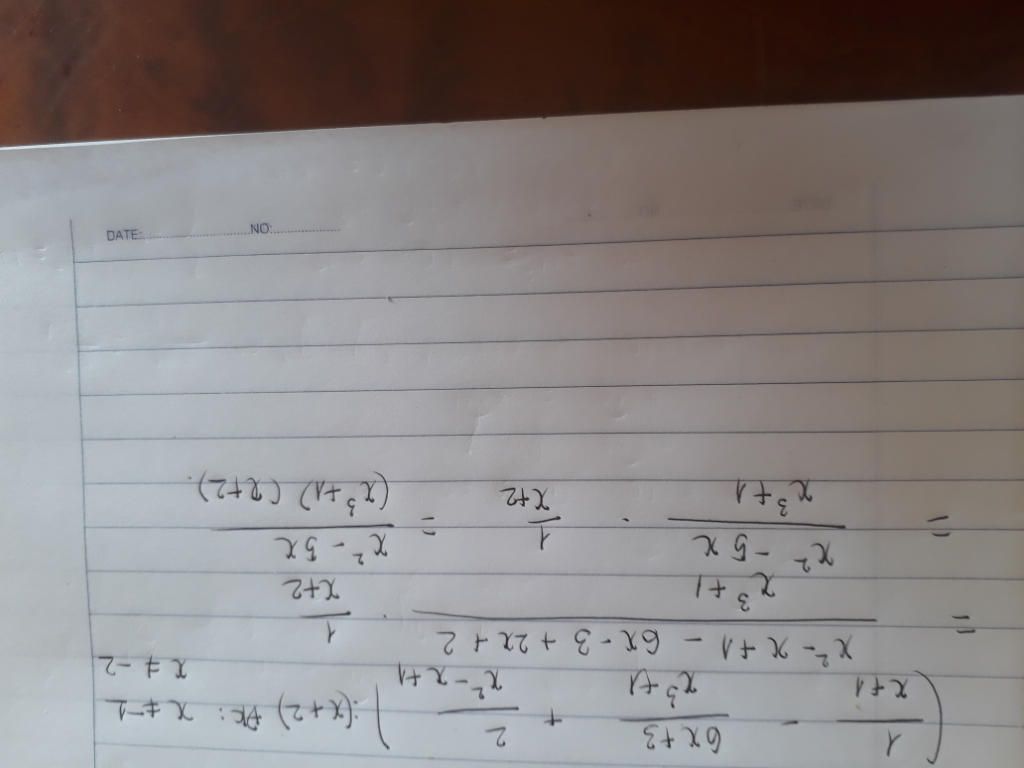 (1/(x+1) - (6x+3)/(x³+1) + 2/(x²-x+1)) : (x+2) ĐK: x ≠ -1
x ≠ -2
= (x²-x+1 - 6x-3 + 2x+2)/(x³+1) . 1/(x+2)
= (x²-5x)/(x³+1) . 1/(x+2) = (x²-5x)/((x³+1)(x+2)).
DATE: NO: